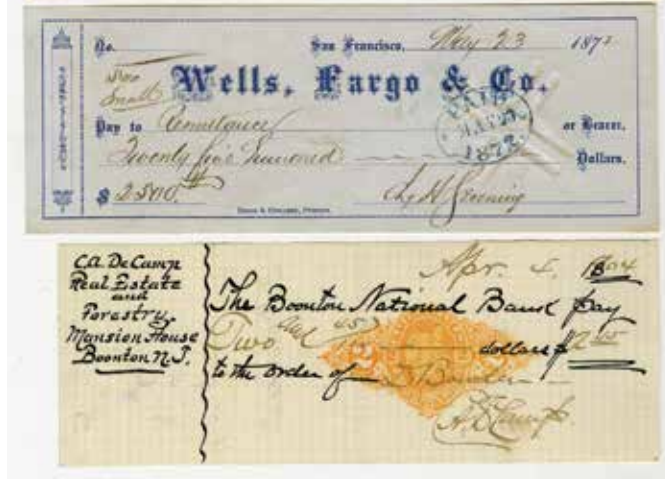 No. San Francisco, May 23 1872
Wells, Fargo & Co.
Small
Pay to Remittance or Bearer,
Twenty five Hundred Dollars.
$ 2500.
PAID
MAY 23
1872
C.A. DeCamp
Real Estate
and
Forestry.
Mansion House
Boonton N.J.
Apr. 4. 1804
The Boonton National Bank Pay
Two and 45/100 dollars $2.45
to the order of